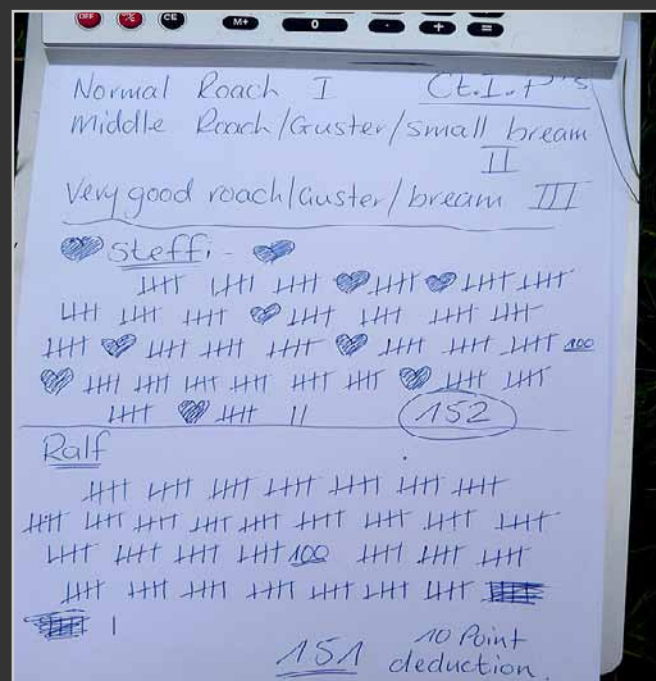 OFF % CE M+ 0 . + =
Normal Roach I
Middle Roach/Guster/small bream
II
Very good roach/Guster/bream III
Steffi -
100
152
Ralf
100
10 Point
151 deduction.